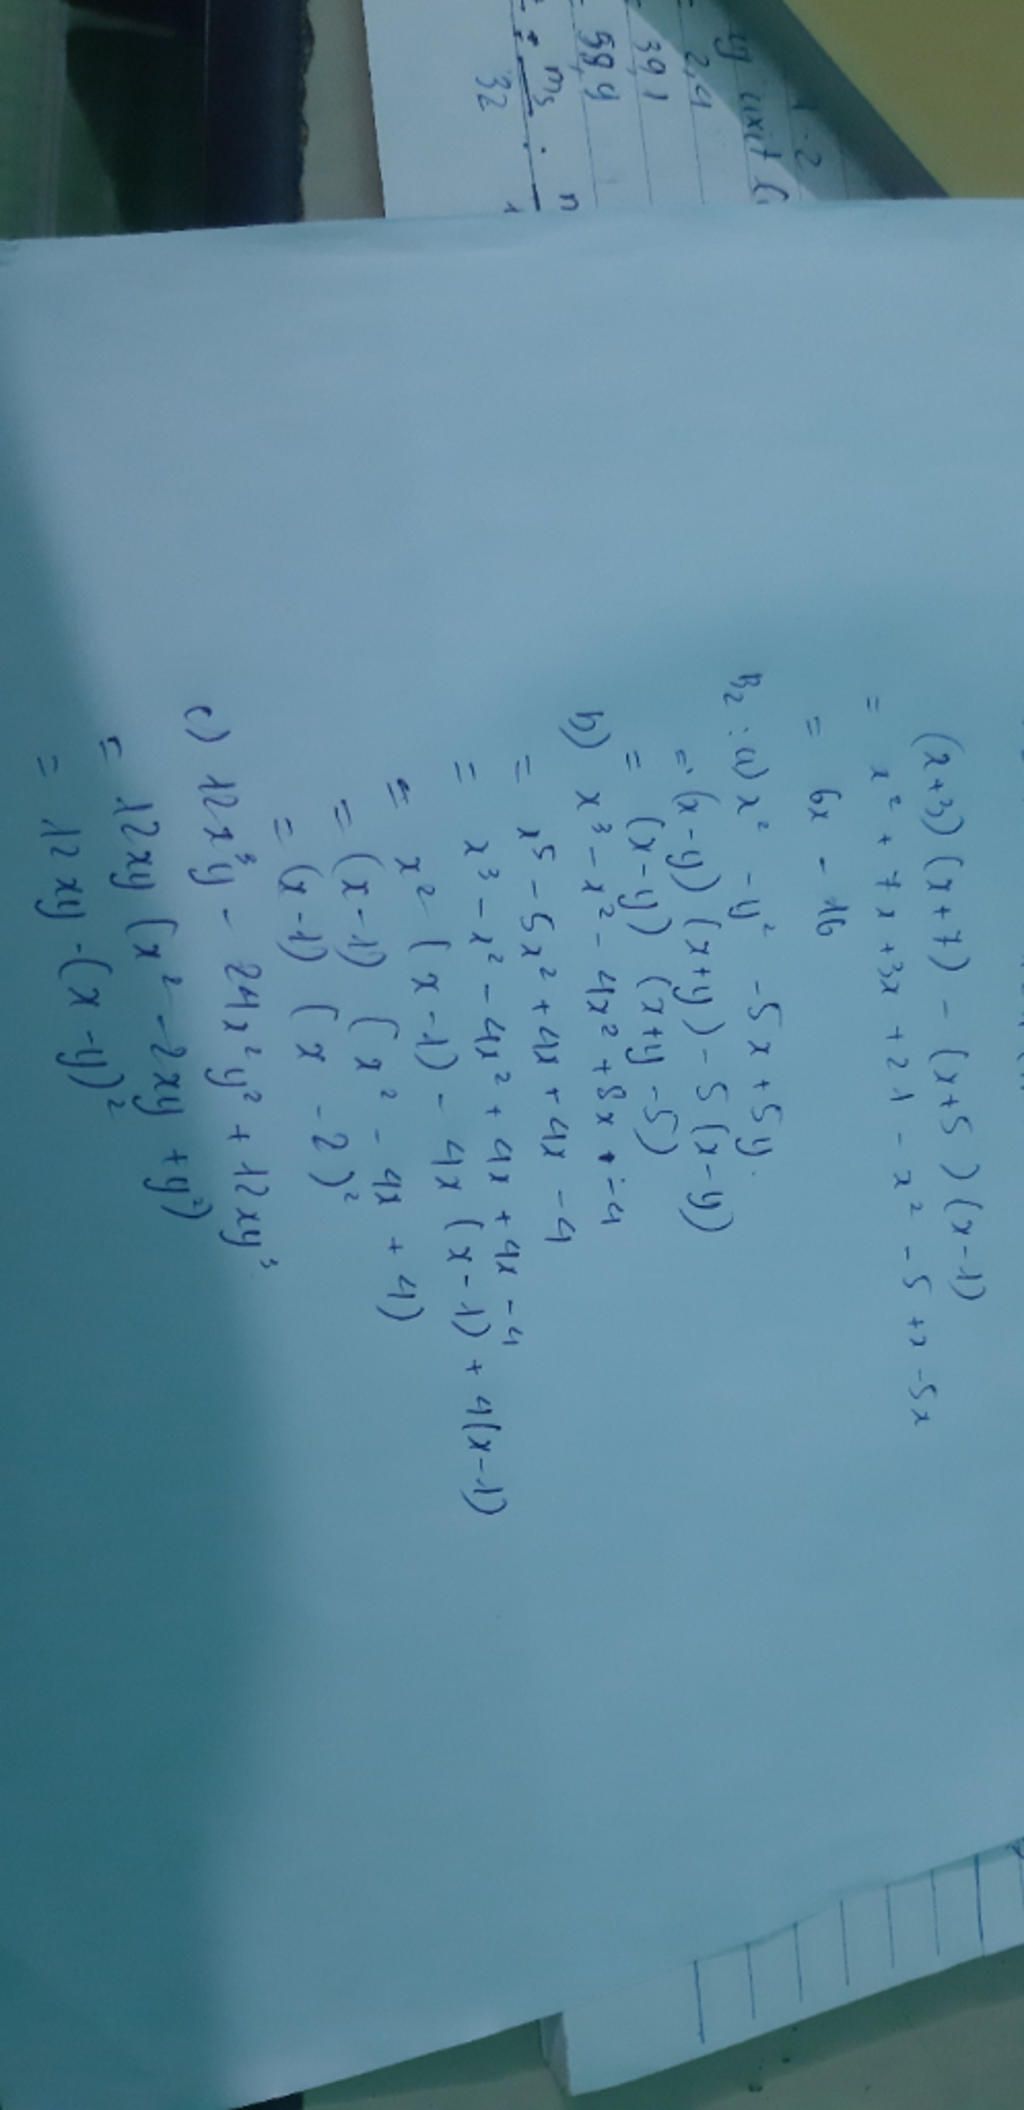 (x+3)(x+7) - (x+5)(x-1)
= x² + 7x + 3x + 21 - x² - 5 + x - 5x
= 6x - 16
B2: a) x² - y² - 5x + 5y.
= (x-y)(x+y) - 5(x-y)
= (x-y) (x+y-5)
b) x³ - x² - 4x² + 8x - 4
= x⁵ - 5x² + 4x + 4x - 4
= x³ - x² - 4x² + 4x + 4x - 4
= x² (x-1) - 4x (x-1) + 4(x-1)
= (x-1) (x² - 4x + 4)
= (x-1) (x - 2)²
c) 12x³y - 24x²y² + 12xy³
= 12xy (x² - 2xy + y²)
= 12xy · (x-y)²
2,4
39,1
59,4
32